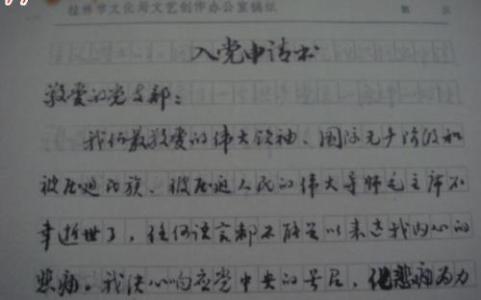 桂林市文化局文艺创作办公室稿纸 第 页
入党申请书
敬爱的党支部：
我们最敬爱的伟大领袖、国际无产阶级和
被压迫民族、被压迫人民的伟大导师毛主席不
幸逝世了，任何语言都不能足以表达我内心的
悲痛。我决心响应党中央的号召，化悲痛为力